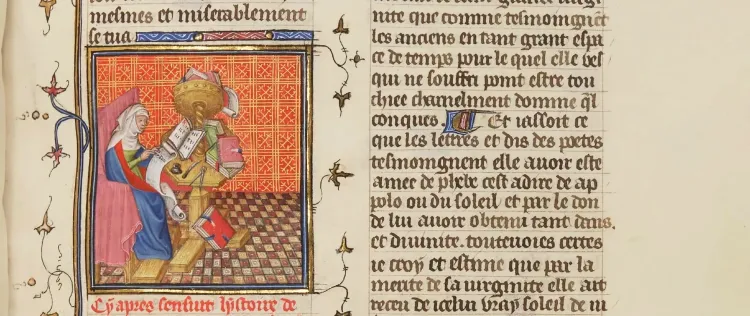 mesmes et miserablement
se tua
Cy apres sensuit lystoire de
nite que comme tesmoingnēt
les anciens en tant grant espa
ce de temps pour le quel elle ves
qui ne souffri point estre tou
chiee charnelment domme q̄l
conques. Et iassoit ce
que les lettres et dis des poetes
tesmoingnent elle auoir este
amee de phebe cest adire de ap
polo ou du soleil et par le don
de lui auoir obtenu tant dans.
et diuinite. toutesuoies certes
ie croy et estime que par la
merite de sa uirginite elle ait
receu de icelui vray soleil de iu